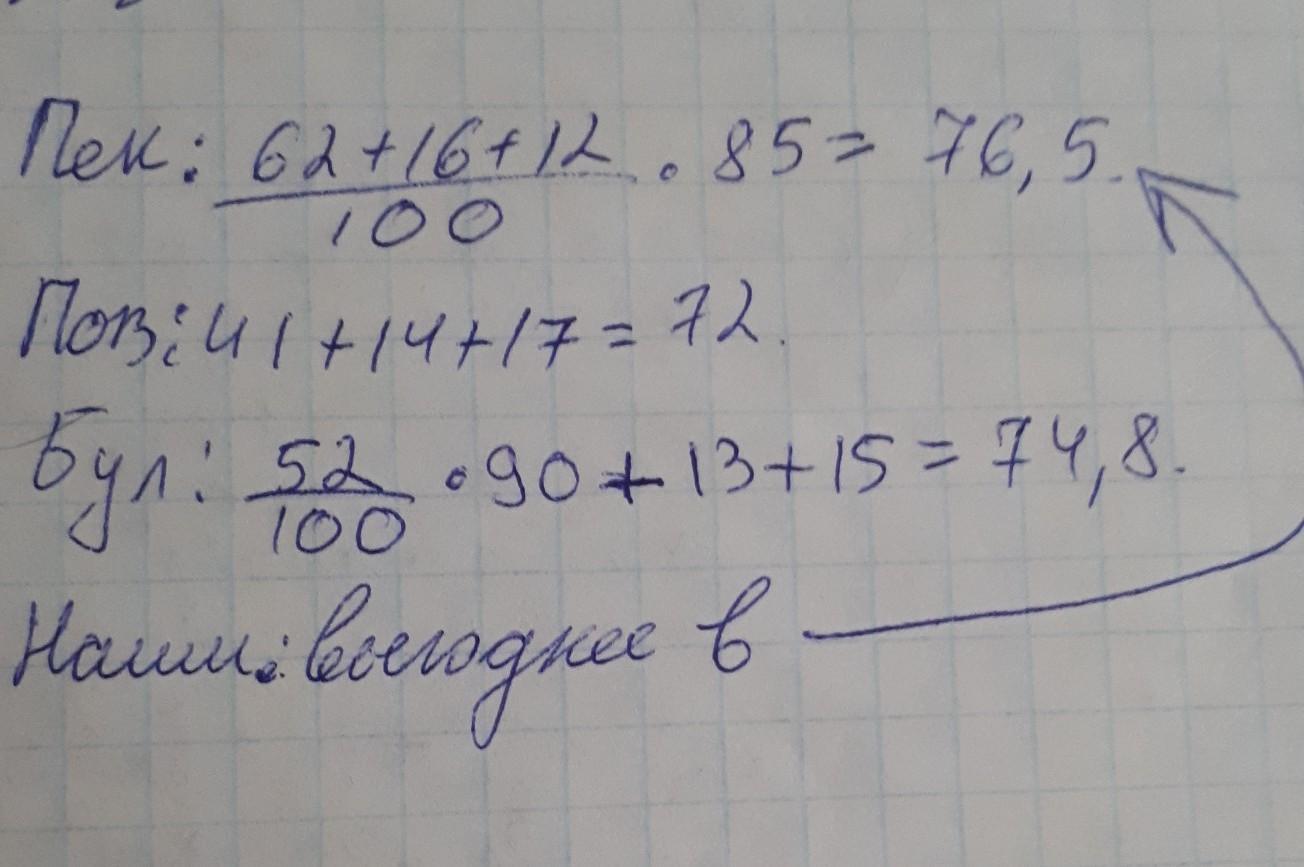 Пек: 62+16+12/100 · 85 = 76,5.
Пов: 41+14+17 = 72.
Бул: 52/100 · 90 + 13 + 15 = 74,8.
Наши: выгоднее в